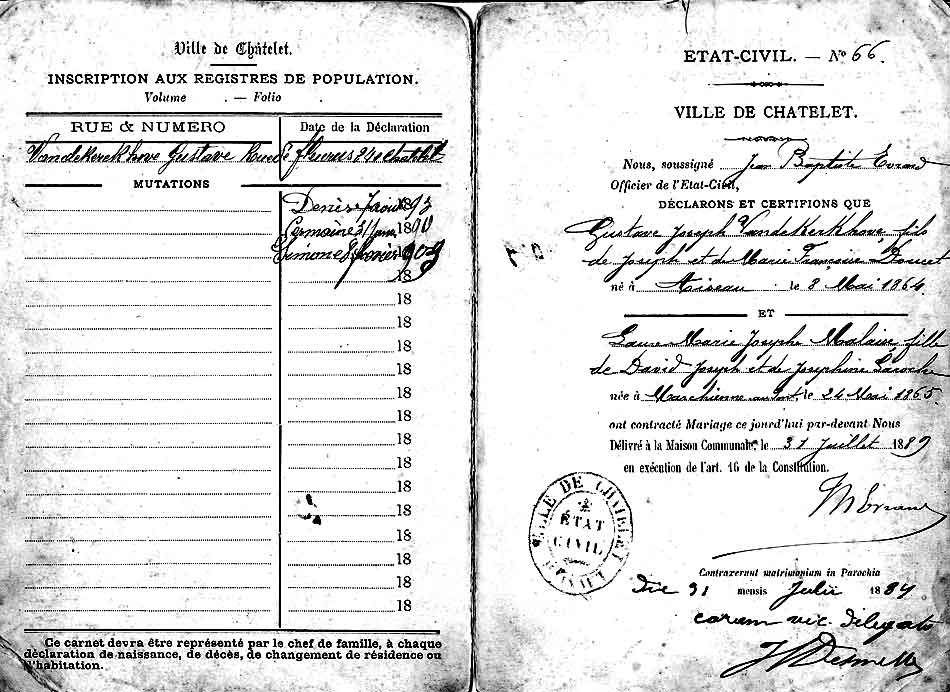 Ville de Châtelet.
INSCRIPTION AUX REGISTRES DE POPULATION.
Volume . — Folio .
RUE & NUMERO
Date de la Déclaration
Vandekerckhove Gustave Rue de fleurus 24 à Chatelet
MUTATIONS
Denise 7 aout 1893
Germaine 31 1890
Simone 8 février 1903
18
18
18
18
18
18
18
18
18
18
18
18
18
18
18
Ce carnet devra être représenté par le chef de famille, à chaque
déclaration de naissance, de décès, de changement de résidence ou
d'habitation.
ETAT-CIVIL. — No 66.
VILLE DE CHATELET.
Nous, soussigné Jean Baptiste Evrard
Officier de l'Etat-Civil,
DÉCLARONS ET CERTIFIONS QUE
Gustave Joseph Vandekerkhove, fils
de Joseph et de Marie Françoise Doucet
né à Aiseau le 8 Mai 1864.
ET
Laure Marie Josephe Malaise, fille
de David Joseph et de Josephine Laroche
née à Marchienne au Pont, le 24 Mai 1865.
ont contracté Mariage ce jourd'hui par-devant Nous
Délivré à la Maison Communale, le 31 Juillet 1889
en exécution de l'art. 16 de la Constitution.
VILLE DE CHATELET
ÉTAT
CIVIL
HAINAUT
Contraxerunt matrimonium in Parochia
Die 31 mensis Julii 1889
coram vic. delegato